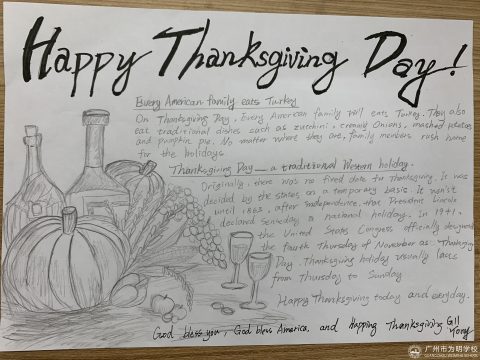 Happy Thanksgiving Day!
Every American family eats Turkey
On Thanksgiving Day, Every American family will eats Turkey. They also
eat traditional dishes such as zucchini, creamy Onions, mashed potatoes
and pumpkin pie. No matter where they are, family members rush home
for the holidays
Thanksgiving Day — a traditional Western holiday.
Originally, there was no fixed date for Thanksgiving. It was
decided by the states on a temporary basis. It wasn't
until 1863, after independence, that President Lincoln
declared a national holiday. In 1941,
the United States Congress officially designed
the fourth Thursday of November as Thanksgiving
Day. Thanksgiving holiday usually lasts
from Thursday to Sunday
Happy Thanksgiving today and everyday.
God bless you, God bless America, and Happing Thanksgiving
Tony
广州市为明学校